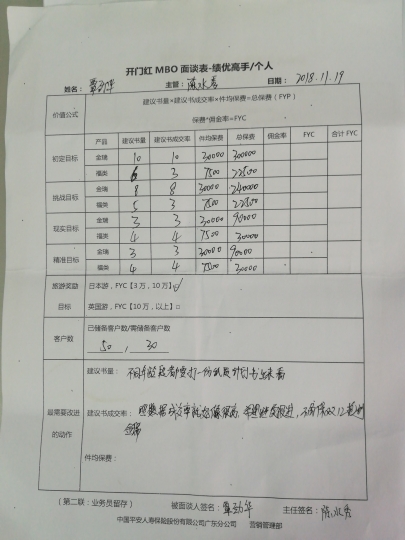 开门红 MBO 面谈表-绩优高手/个人
姓名： 覃劲华 主管： 陈水秀 日期： 2018.11.19
价值公式
建议书量×建议书成交率×件均保费=总保费（FYP）
保费*佣金率=FYC
产品 建议书量 建议书成交率 件均保费 总保费 佣金率 FYC 合计 FYC
初定目标
金瑞 10 10 30000 300000
福类 3 7500 22500
挑战目标
金瑞 8 8 30000 240000
福类 5 3 7500 22500
现实目标
金瑞 3 3 30000 90000
福类 4 4 7500 30000
精准目标
金瑞 3 3 30000 90000
福类 4 4 7500 30000
旅游奖励目标
日本游，FYC【3 万，10 万】☑
英国游，FYC【10 万，以上】□
客户数
已储备客户数/需储备客户数
50 ， 30
最需要改进的动作
建议书量：
建议书成交率：
件均保费：
（第二联：业务员留存） 被面谈人签名：覃劲华 主任签名：陈水秀
中国平安人寿保险股份有限公司广东分公司 营销管理部